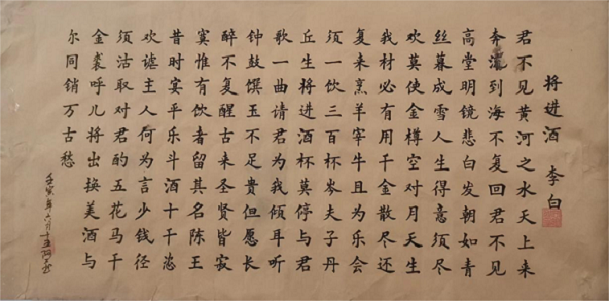 将进酒 李白
君不见黄河之水天上来
奔流到海不复回君不见
高堂明镜悲白发朝如青
丝暮成雪人生得意须尽
欢莫使金樽空对月天生
我材必有用千金散尽还
复来烹羊宰牛且为乐会
须一饮三百杯岑夫子丹
丘生将进酒杯莫停与君
歌一曲请君为我倾耳听
钟鼓馔玉不足贵但愿长
醉不复醒古来圣贤皆寂
寞惟有饮者留其名陈王
昔时宴平乐斗酒十千恣
欢谑主人何为言少钱径
须沽取对君酌五花马千
金裘呼儿将出换美酒与
尔同销万古愁
壬寅年六月十五